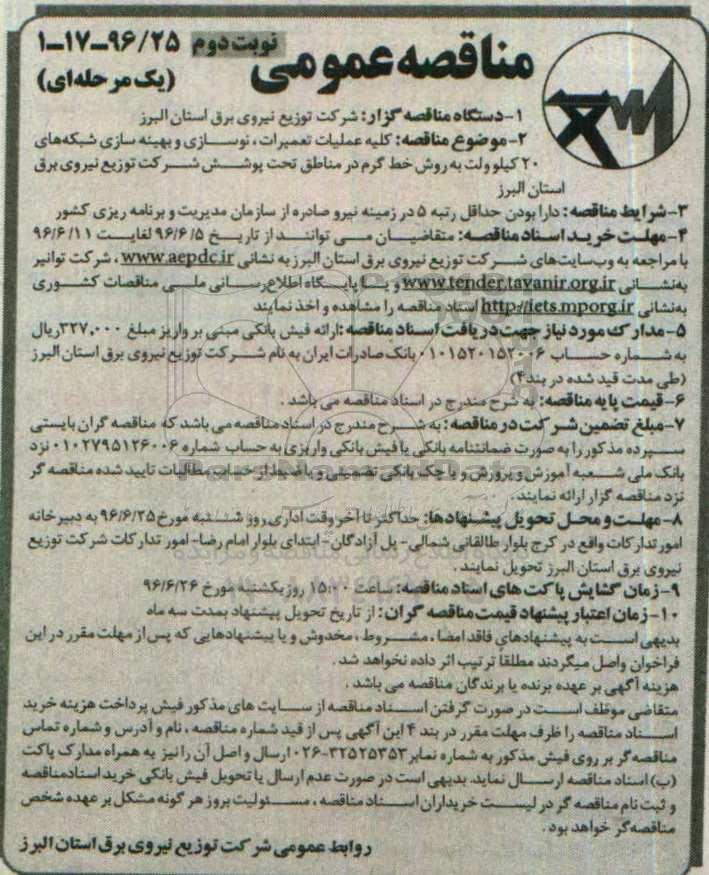 مناقصه عمومی نوبت دوم ۹۶/۲۵-۱۷-۱
(یک مرحله‌ای)
۱-دستگاه مناقصه گزار: شرکت توزیع نیروی برق استان البرز
۲-موضوع مناقصه: کلیه عملیات تعمیرات، نوسازی و بهینه سازی شبکه‌های
۲۰ کیلو ولت به روش خط گرم در مناطق تحت پوشش شرکت توزیع نیروی برق
استان البرز
۳-شرایط مناقصه: دارا بودن حداقل رتبه ۵ در زمینه نیرو صادره از سازمان مدیریت و برنامه ریزی کشور
۴-مهلت خرید اسناد مناقصه: متقاضیان می توانند از تاریخ ۹۶/۶/۵ لغایت ۹۶/۶/۱۱
با مراجعه به وب‌سایت‌های شرکت توزیع نیروی برق استان البرز به نشانی www.aepdc.ir، شرکت توانیر
به‌نشانی www.tender.tavanir.org.ir و یا پایگاه اطلاع‌رسانی ملی مناقصات کشوری
به‌نشانی http://iets.mporg.ir اسناد مناقصه را مشاهده و اخذ نمایند
۵-مدارک مورد نیاز جهت دریافت اسناد مناقصه: ارائه فیش بانکی مبنی بر واریز مبلغ ۳۲۷,۰۰۰ ریال
به شماره حساب ۰۱۰۱۵۲۰۱۵۲۰۰۶ بانک صادرات ایران به نام شرکت توزیع نیروی برق استان البرز
(طی مدت قید شده در بند ۴)
۶-قیمت پایه مناقصه: به شرح مندرج در اسناد مناقصه می باشد.
۷-مبلغ تضمین شرکت در مناقصه: به شرح مندرج در اسناد مناقصه می باشد که مناقصه گران بایستی
سپرده مذکور را به صورت ضمانتنامه بانکی یا فیش بانکی واریزی به حساب شماره ۰۱۰۲۷۹۵۱۲۶۰۰۶ نزد
بانک ملی شعبه آموزش و پرورش و یا چک بانکی تضمینی و یا ضبط از حساب مطالبات تایید شده مناقصه گر
نزد مناقصه گزار ارائه نمایند.
۸-مهلت و محل تحویل پیشنهادها: حداکثر تا آخر وقت اداری روز شنبه مورخ ۹۶/۶/۲۵ به دبیرخانه
امور تدارکات واقع در کرج بلوار طالقانی شمالی- پل آزادگان- ابتدای بلوار امام رضا- امور تدارکات شرکت توزیع
نیروی برق استان البرز تحویل نمایند.
۹-زمان گشایش پاکت های اسناد مناقصه: ساعت ۱۵:۰۰ روز یکشنبه مورخ ۹۶/۶/۲۶
۱۰-زمان اعتبار پیشنهاد قیمت مناقصه گران: از تاریخ تحویل پیشنهاد بمدت سه ماه
بدیهی است به پیشنهادهای فاقد امضا، مشروط، مخدوش و یا پیشنهادهایی که پس از مهلت مقرر در این
فراخوان واصل میگردند مطلقا ترتیب اثر داده نخواهد شد.
هزینه آگهی بر عهده برنده یا برندگان مناقصه می باشد.
متقاضی موظف است در صورت گرفتن اسناد مناقصه از سایت های مذکور فیش پرداخت هزینه خرید
اسناد مناقصه را ظرف مهلت مقرر در بند ۴ این آگهی پس از قید شماره مناقصه، نام و آدرس و شماره تماس
مناقصه‌گر بر روی فیش مذکور به شماره نمابر ۳۲۵۲۵۳۵۳-۰۲۶ ارسال و اصل آن را نیز به همراه مدارک پاکت
(ب) اسناد مناقصه ارسال نماید. بدیهی است در صورت عدم ارسال یا تحویل فیش بانکی خرید اسناد مناقصه
و ثبت نام مناقصه گر در لیست خریداران اسناد مناقصه، مسئولیت بروز هر گونه مشکل بر عهده شخص
مناقصه‌گر خواهد بود.
روابط عمومی شرکت توزیع نیروی برق استان البرز